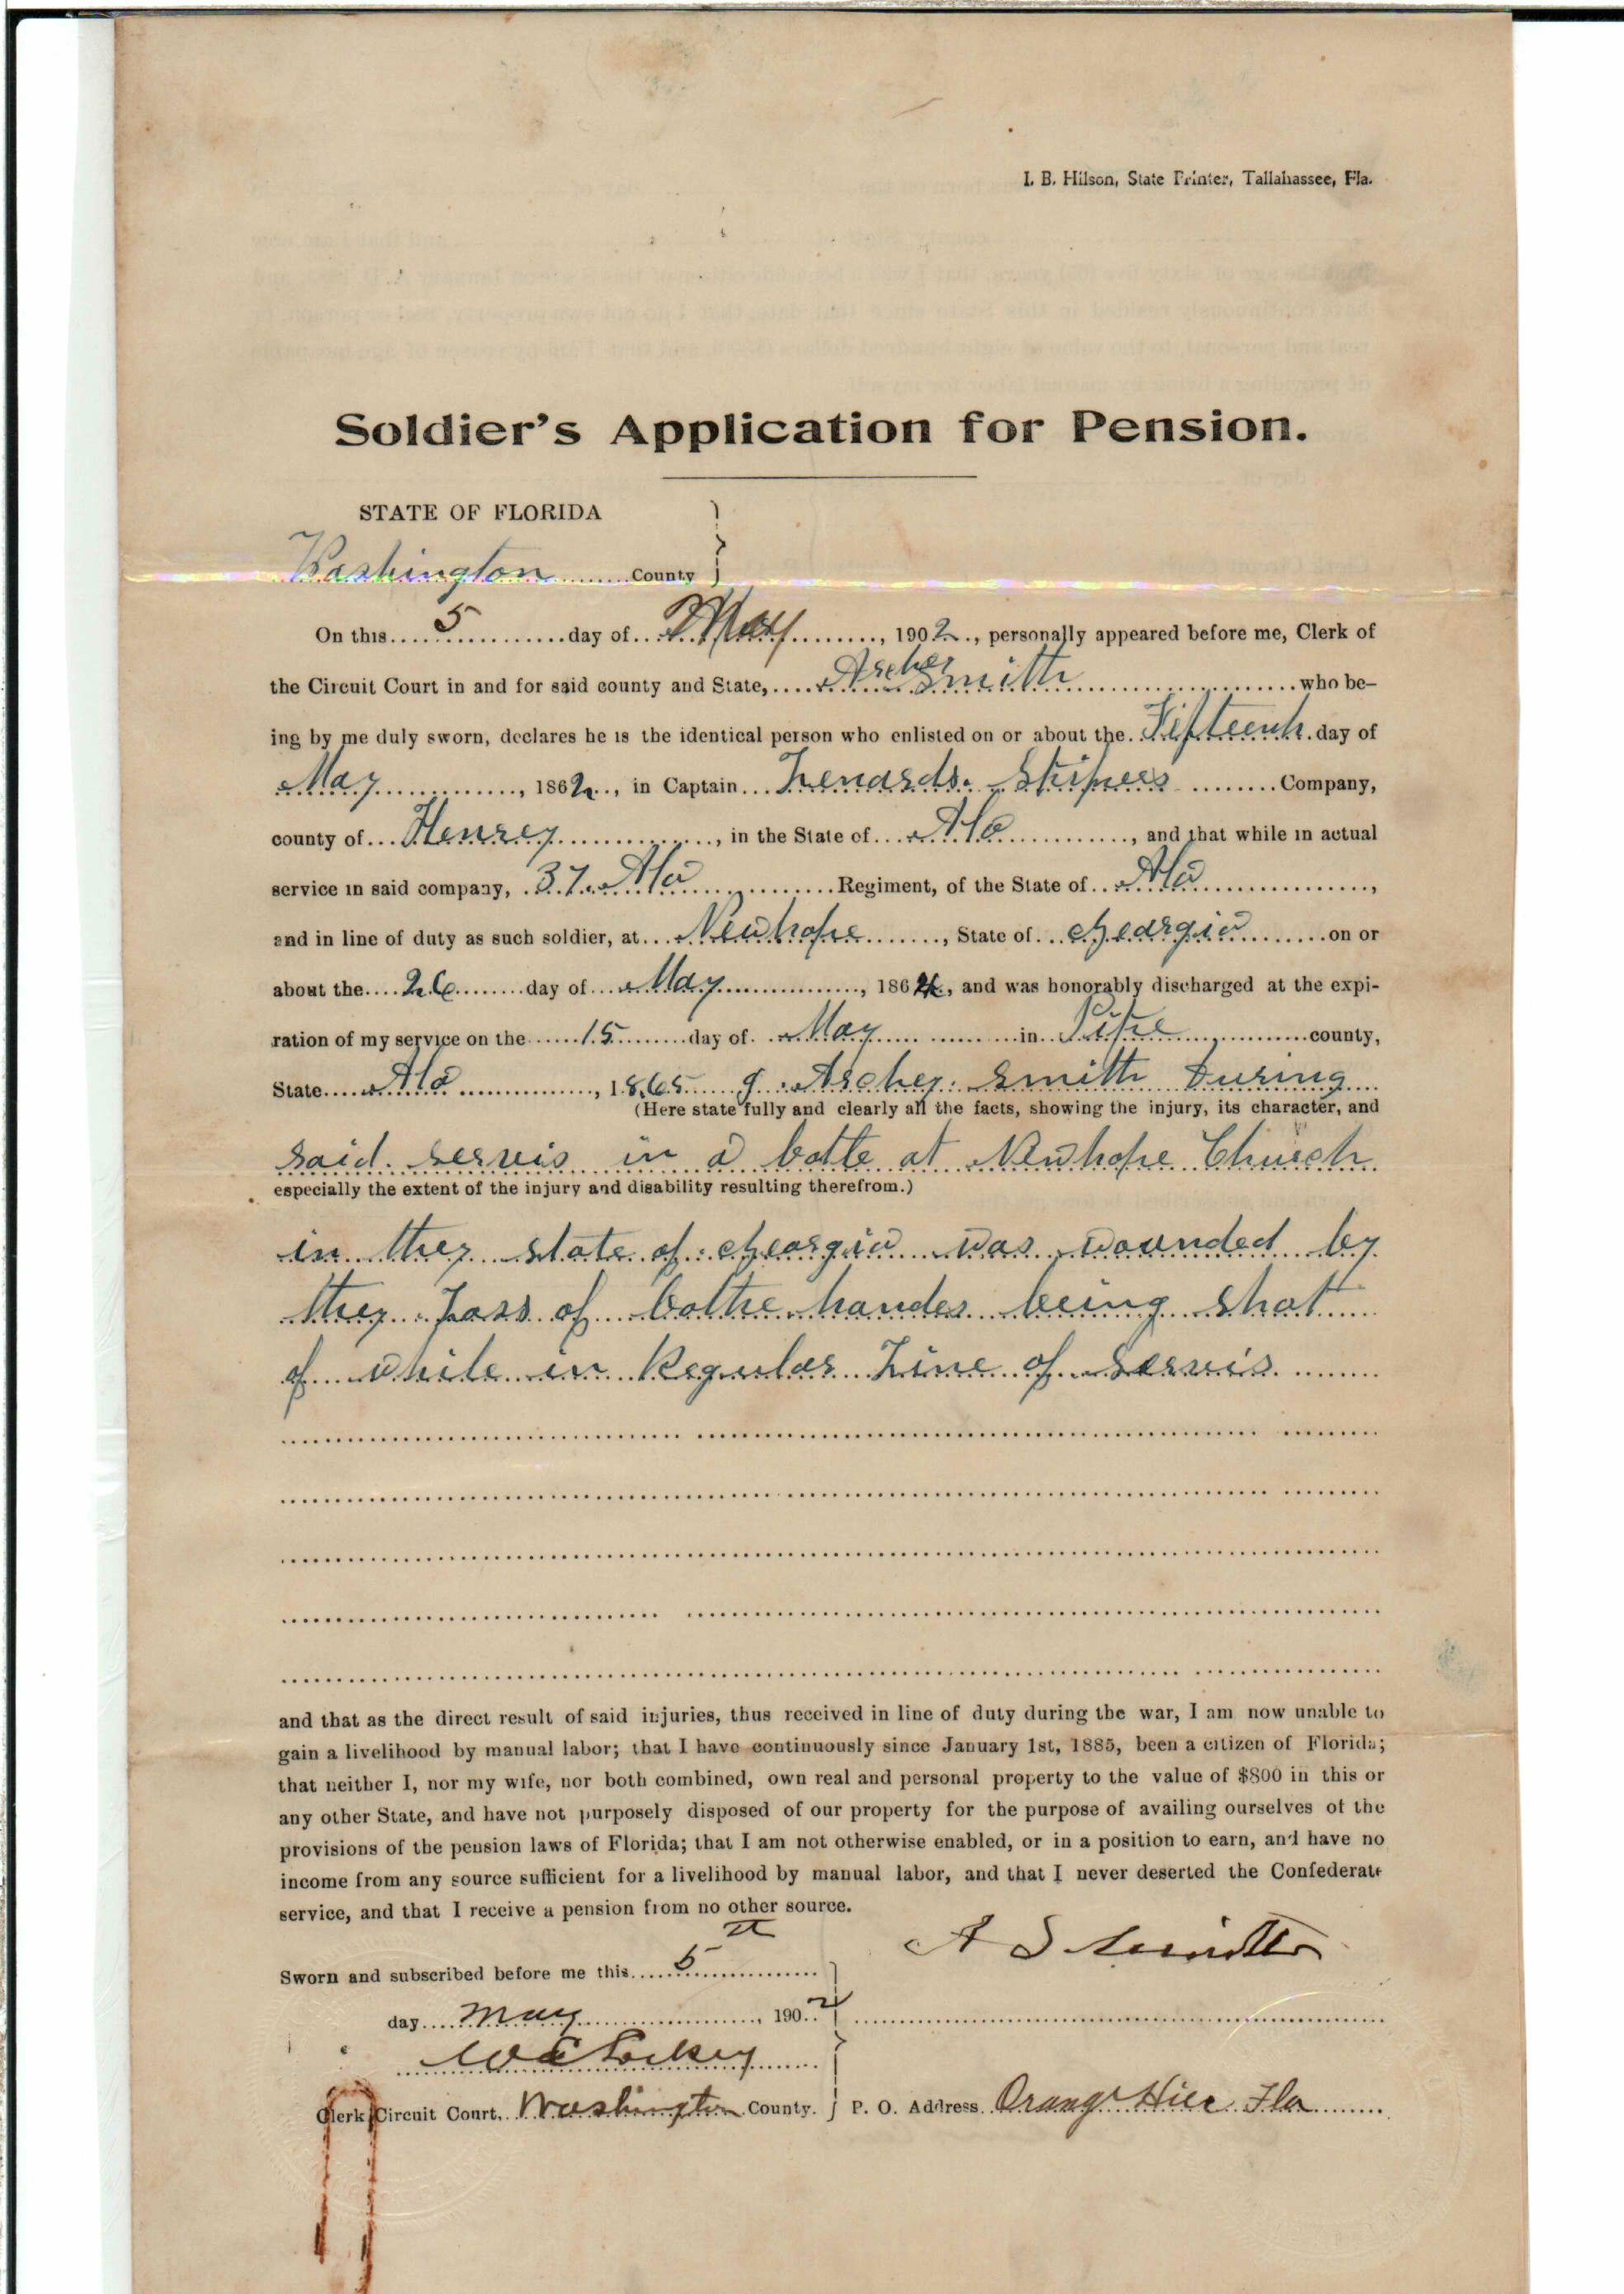 I. B. Hilson, State Printer, Tallahassee, Fla.
Soldier's Application for Pension.
STATE OF FLORIDA
Washington County
On this 5 day of May, 1902, personally appeared before me, Clerk of
the Circuit Court in and for said county and State, Archer Smith who be-
ing by me duly sworn, declares he is the identical person who enlisted on or about the Fifteenh day of
May, 1862, in Captain Lenards Skipers Company,
county of Henrey, in the State of Ala, and that while in actual
service in said company, 37 Ala Regiment, of the State of Ala,
and in line of duty as such soldier, at Newhope, State of Georgia on or
about the 26 day of May, 1864, and was honorably discharged at the expi-
ration of my service on the 15 day of May in Pike county,
State Ala, 1865 I Archer Smith During
(Here state fully and clearly all the facts, showing the injury, its character, and
said servis in a batle at Newhope Church
especially the extent of the injury and disability resulting therefrom.)
in they state of Georgia was wounded by
they Loss of bothe handes being shot
of while in Regular Line of Servis
and that as the direct result of said injuries, thus received in line of duty during the war, I am now unable to
gain a livelihood by manual labor; that I have continuously since January 1st, 1885, been a citizen of Florida;
that neither I, nor my wife, nor both combined, own real and personal property to the value of $800 in this or
any other State, and have not purposely disposed of our property for the purpose of availing ourselves of the
provisions of the pension laws of Florida; that I am not otherwise enabled, or in a position to earn, and have no
income from any source sufficient for a livelihood by manual labor, and that I never deserted the Confederate
service, and that I receive a pension from no other source.
A S Smith
Sworn and subscribed before me this 5
day May, 1902
W C Lockey
Clerk Circuit Court, Washington County. P. O. Address Orange Hill Fla